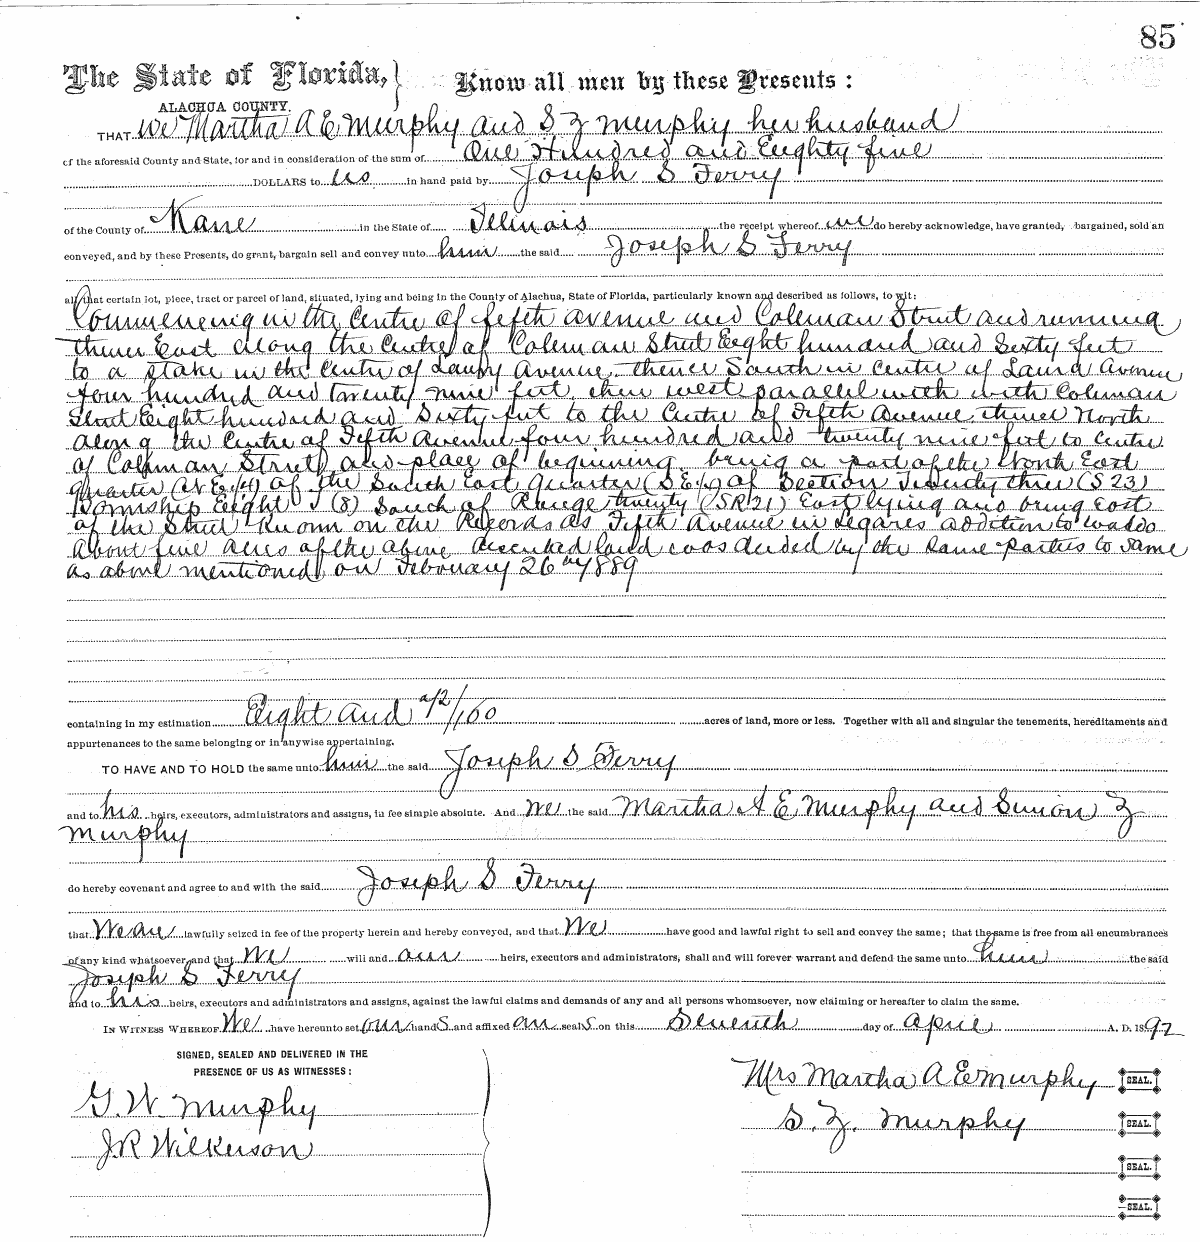 85
The State of Florida, Know all men by these Presents :
ALACHUA COUNTY.
THAT we Martha A E Murphy and S Z Murphy her husband
of the aforesaid County and State, for and in consideration of the sum of One Hundred and Eighty five
DOLLARS to us in hand paid by Joseph S Ferry
of the County of Kane in the State of Illinois the receipt whereof we do hereby acknowledge, have granted, bargained, sold an
conveyed, and by these Presents, do grant, bargain sell and convey unto him the said Joseph S Ferry
all that certain lot, piece, tract or parcel of land, situated, lying and being in the County of Alachua, State of Florida, particularly known and described as follows, to wit:
Commencing in the Centre of fifth avenue and Coleman Street and running
thence East along the Centre of Coleman Street Eight hundred and Sixty feet
to a stake in the Centre of Avenue, thence South in centre of Laura Avenue
four hundred and twenty nine feet, then west parallel with with Coleman
Street Eight hundred and Sixty feet to the Centre of Fifth Avenue, thence North
along the Centre of Fifth Avenue four hundred and twenty nine feet to Centre
of Coleman Street and place of beginning being a part of the North East
quarter (N E ¼) of the South East Quarter (S E ¼) of Section Twenty three (S 23)
Township Eight (8) South of Range twenty (SR21) East lying and being East
of the Street Known on the Records as Fifth Avenue in Legares addition to Waldo
About five acres of the above described land was deeded by the same parties to same
as above mentioned on February 26 1889
containing in my estimation Eight and /100 acres of land, more or less. Together with all and singular the tenements, hereditaments and
appurtenances to the same belonging or in anywise appertaining.
TO HAVE AND TO HOLD the same unto him the said Joseph S Ferry
and to his heirs, executors, administrators and assigns, in fee simple absolute. And we the said Martha A E Murphy and Simon Z
Murphy
do hereby covenant and agree to and with the said Joseph S Ferry
that We are lawfully seized in fee of the property herein and hereby conveyed, and that We have good and lawful right to sell and convey the same; that the same is free from all encumbrances
of any kind whatsoever, and that We will and our heirs, executors and administrators, shall and will forever warrant and defend the same unto him the said
Joseph S Ferry
and to his heirs, executors and administrators and assigns, against the lawful claims and demands of any and all persons whomsoever, now claiming or hereafter to claim the same.
IN WITNESS WHEREOF We have hereunto set our hands and affixed our seals on this Seventh day of April A. D. 1892
SIGNED, SEALED AND DELIVERED IN THE
PRESENCE OF US AS WITNESSES :
G. W. Murphy
J R Wilkerson
Mrs Martha A E Murphy SEAL.
S. Z. Murphy SEAL.
SEAL.
SEAL.